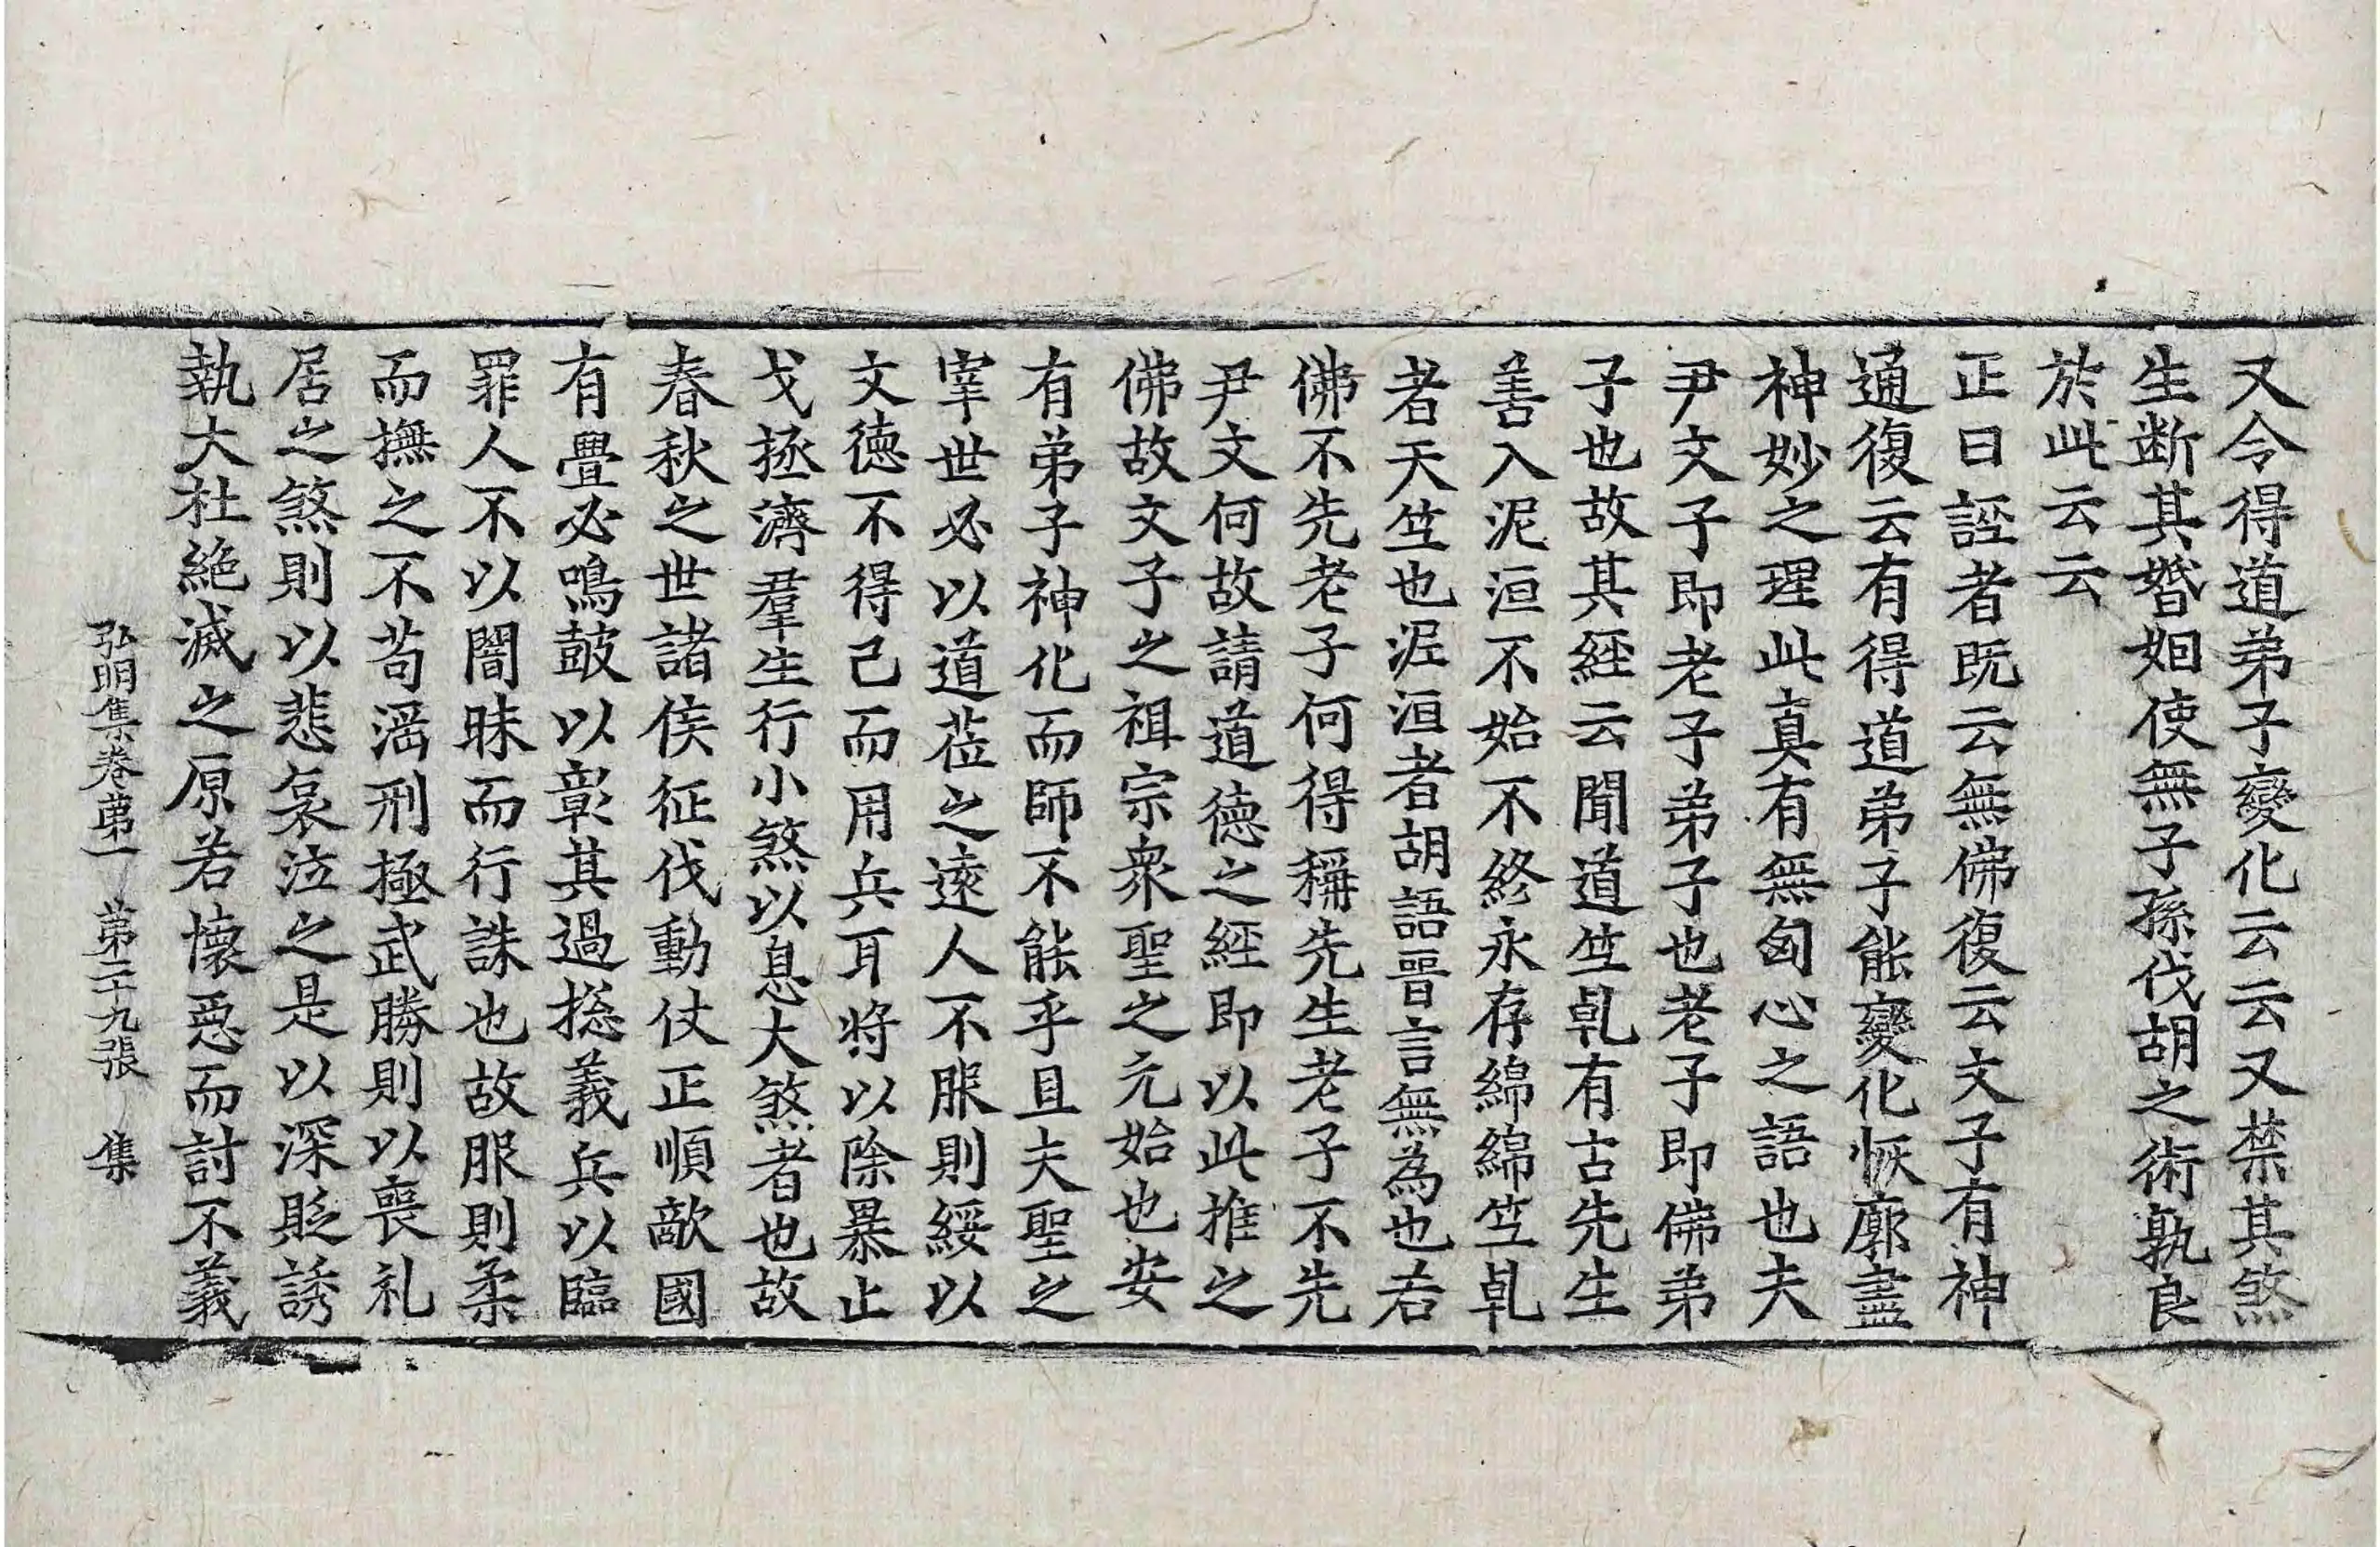 又令得道弟子變化云云又禁其煞
生断其婚姻使無子孫伐胡之術孰良
於此云云
正曰誣者既云無佛復云文子有神
通復云有得道弟子能變化恢廓盡
神妙之理此真有無匈心之語也夫
尹文子即老子弟子也老子即佛弟
子也故其經云聞道竺乹有古先生
善入泥洹不始不終永存綿綿竺乹
者天竺也泥洹者胡語晋言無為也若
佛不先老子何得稱先生老子不先
尹文何故請道德之經即以此推之
佛故文子之祖宗衆聖之元始也安
有弟子神化而師不能乎且夫聖之
宰世必以道莅之遠人不服則綏以
文德不得已而用兵耳將以除暴止
戈拯濟羣生行小煞以息大煞者也故
春秋之世諸侯征伐動仗正順敵國
有舋必鳴鼓以彰其過捴義兵以臨
罪人不以闇昧而行誅也故服則柔
而撫之不苟滛刑極武勝則以喪礼
居之煞則以悲哀泣之是以深貶誘
執大杜絶滅之原若懷惡而討不義
弘明集卷第一 第二十九張 集